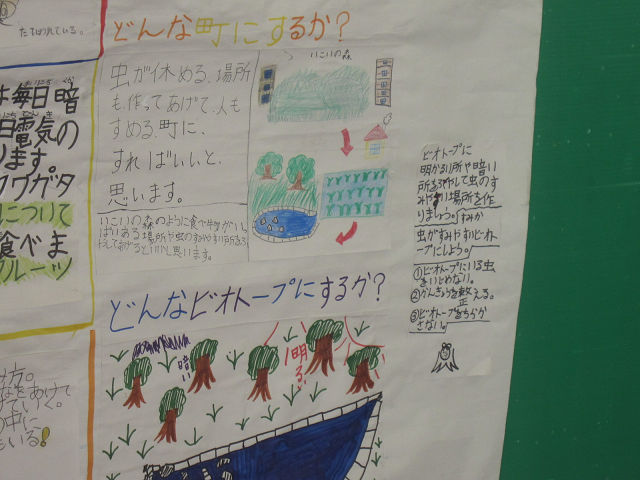 たてられている。
は毎日暗
日電気の
ります
クワガタ
について
食べま
フルーツ
方。
なをあけて
ていく。
の中に
いる!
どんな町にするか?
虫が休める、場所
も作ってあげて、人も
すめる、町に、
すればいいと、
思います。
いこいの森
いこいの森のように食べ物がいっ
ぱいある場所や虫のすみやすい所をふ
やしてあげるといいと思います。
どんなビオトープにするか?
暗い
明るい
ビオトープに
明かるい所や暗い
所をふやして虫のす
みやすい場所を作
りましょう。
虫がすみやすいビオト
ープにしよう。
①ビオトープにいる虫
をいじめない。
②かんきょうを整える。
③ビオトープをちらか
さない。